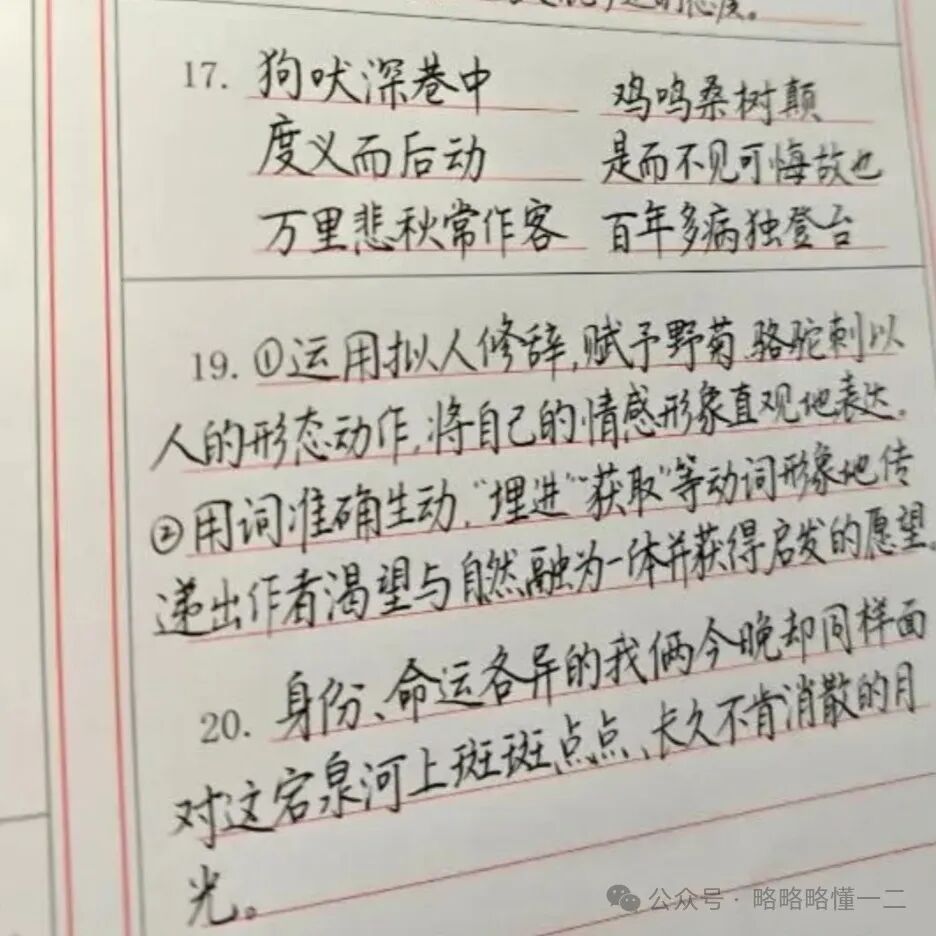 17. 狗吠深巷中 鸡鸣桑树颠
度义而后动 是而不见可悔故也
万里悲秋常作客 百年多病独登台
19. ①运用拟人修辞,赋予野菊、骆驼刺以
人的形态动作,将自己的情感形象直观地表达。
②用词准确生动,“埋进”“获取”等动词形象地传
递出作者渴望与自然融为一体并获得启发的愿望。
20. 身份、命运各异的我俩今晚却同样面
对这宕泉河上斑斑点点、长久不肯消散的月
光。
公众号·略略略懂一二